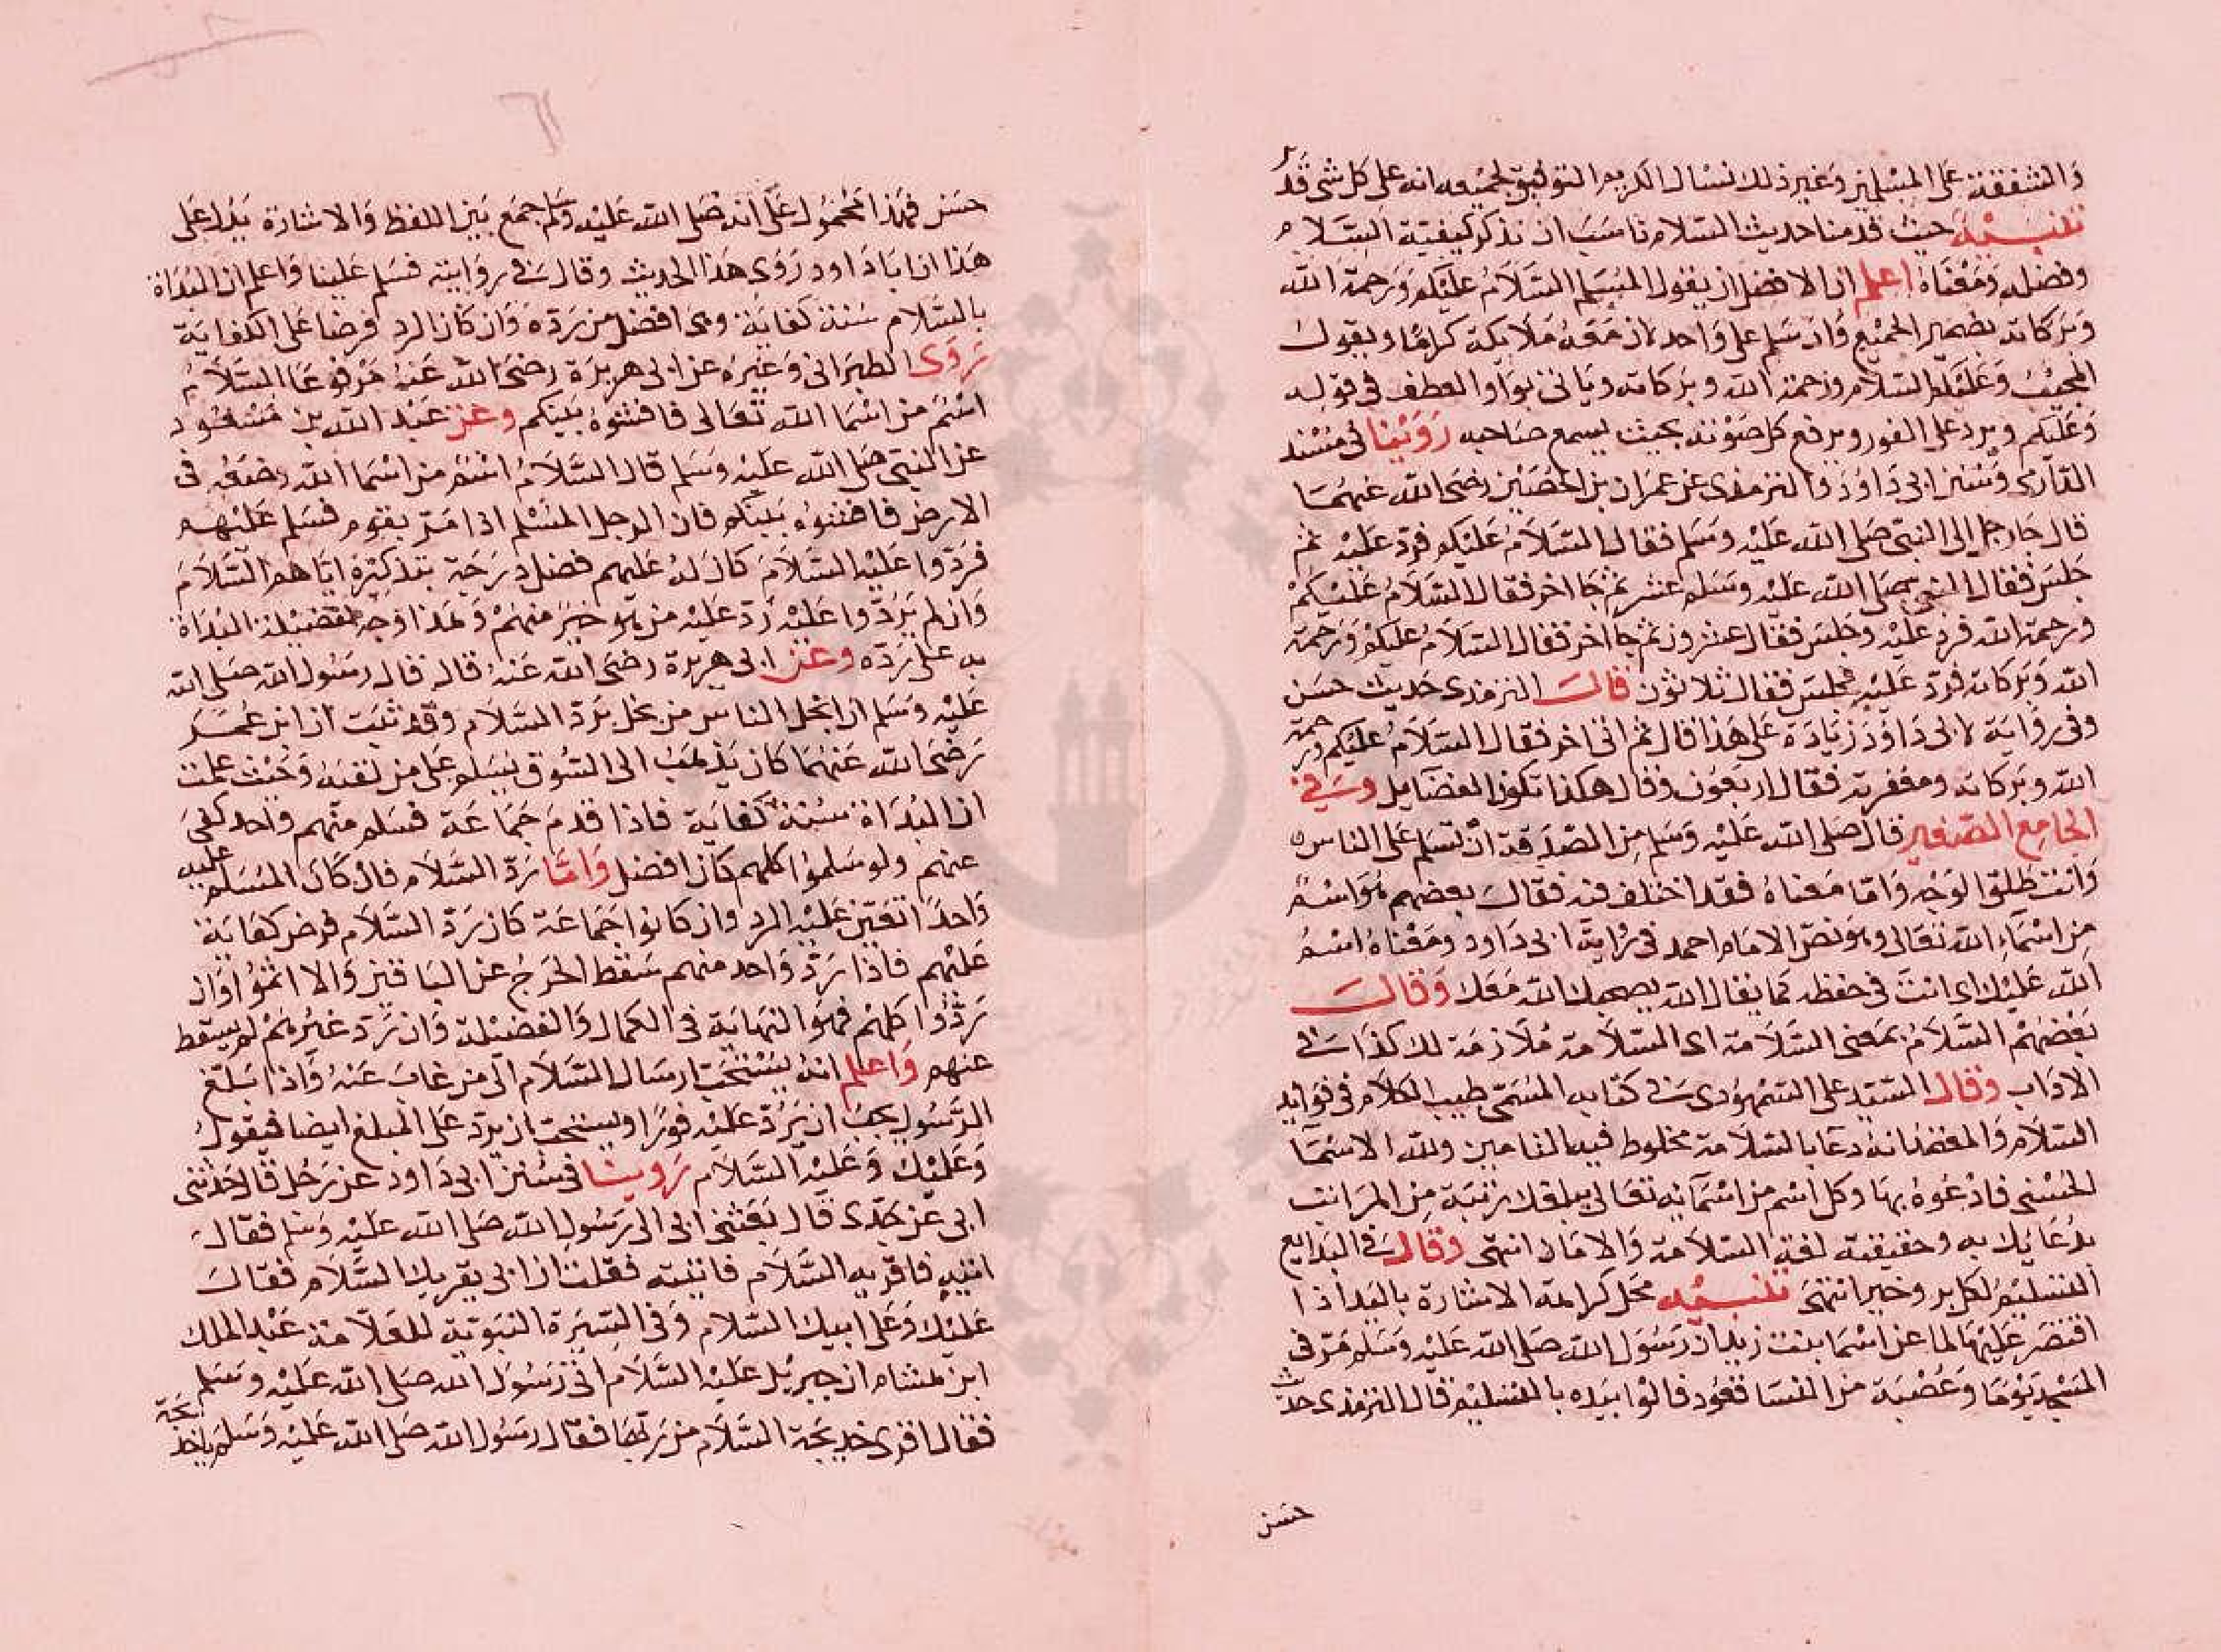 والشفقة على المسلمين وغير ذلك نسال الكريم التوفيق لجميعه انه على كل شى قدير
تنبيه حيث قدمنا حديث السلام ناسب ان نذكر كيفية السلام
وفضله ومعناه اعلم ان الافضل ان يقول المسلم السلام عليكم ورحمة الله
وبركاته بضمير الجميع وان سلم على واحد لان معه ملايكة كراما ويقول
المجيب وعليكم السلام ورحمة الله وبركاته وياتى بواو العطف فى قوله
وعليكم ويرد على الفور ويرفع كل صوته بحيث يسمع صاحبه روينا فى مسند
الدارمى وسنن ابى داود والترمذى عن عمران بن الحصين رضى الله عنهما
قال جا رجل الى النبى صلى الله عليه وسلم فقال السلام عليكم فرد عليه ثم
جلس فقال النبى صلى الله عليه وسلم عشر ثم جا اخر فقال السلام عليكم
ورحمة الله فرد عليه وجلس فقال عشرون ثم جا اخر فقال السلام عليكم ورحمة
الله وبركاته فرد عليه فجلس فقال ثلاثون قال الترمذى حديث حسن
وفى رواية لابى داود زيادة على هذا قال ثم اتى اخر فقال السلام عليكم ورحمة
الله وبركاته ومغفرته فقال اربعون وقال هكذا تكون الفضايل وفى
الجامع الصغير قال صلى الله عليه وسلم من الصدقة ان تسلم على الناس
وانت طلق الوجه واما معناه فقد اختلف فيه فقال بعضهم هو اسم
من اسماء الله تعالى وهو نص الامام احمد فى رواية ابى داود ومعناه اسم
الله عليك اى انت فى حفظه كما يقال الله يصحبك الله معك وقال
بعضهم السلام بمعنى السلامة اى السلامة ملازمة لك كذا فى
الاداب وقال السيد على السمهودى فى كتابه المسمى طيب الكلام فى فوايد
السلام والمعتمد انه دعا بالسلامة مخلوط فيه التامين ولله الاسما
الحسنى فادعوه بها وكل اسم من اسمايه تعالى يبلغك رتبة من المراتب
بدعايك به وحقيقته لغة السلامة والامان انتهى وقال فى البدايع
التسليم لكل بر وخير انتهى تنبيه محل كراهة الاشارة باليد اذا
اقتصر عليها لما عن اسما بنت زيد ان رسول الله صلى الله عليه وسلم مر فى
المسجد يوما وعصبة من النسا قعود فالوا بيده بالتسليم قال الترمذى حديث
حسن
حسن فهذا محمول على انه صلى الله عليه وسلم جمع بين اللفظ والاشارة يدل على
هذا ان ابا داود روى هذا الحديث وقال فى روايته فسلم علينا واعلم ان البداة
بالسلام سنة كفاية وهى افضل من رده وان كان الرد فرضا على الكفاية
روى الطبرانى وغيره عن ابى هريرة رضى الله عنه مرفوعا السلام
اسم من اسما الله تعالى فافشوه بينكم وعن عبد الله بن مسعود
عن النبى صلى الله عليه وسلم قال السلام اسم من اسما الله وضعه فى
الارض فافشوه بينكم فان الرجل المسلم اذا مر بقوم فسلم عليهم
فردوا عليه السلام كان له عليهم فضل درجة بتذكيره اياهم السلام
وان لم يردوا عليه رد عليه من هو خير منهم ولهذا وجه لتفضيلة البداة
به على رده وعن ابى هريرة رضى الله عنه قال قال رسول الله صلى الله
عليه وسلم ان ابخل الناس من بخل برد السلام وقد ثبت ان ابن عمر
رضى الله عنهما كان يذهب الى السوق ليسلم على من لقيه وحيث علمت
ان البداة سنة كفاية فاذا قدم جماعة فسلم منهم واحد كفى
عنهم ولو سلموا كلهم كان افضل واما رد السلام فان كان المسلم عليه
واحدا تعين عليه الرد وان كانوا جماعة كان رد السلام فرض كفاية
عليهم فاذا رد واحد منهم سقط الحرج عن الباقين والا اثموا وان
ردوا كلهم فهو النهاية فى الكمال والفضيلة وان رد غيرهم لم يسقط
عنهم واعلم انه يستحب ارسال السلام الى من غاب عنه واذا بلغ
الرسول يجب ان يرد عليه فورا ويستحب ان يرد على المبلغ ايضا فيقول
وعليك وعليه السلام روينا فى سنن ابى داود عن رجل قال حدثنى
ابى عن جدى قال بعثنى ابى الى رسول الله صلى الله عليه وسلم فقال
ائتيه فاقريه السلام فاتيته فقلت ان ابى يقريك السلام فقال
عليك وعلى ابيك السلام وفى السيرة النبوية للعلامة عبد الملك
ابن هشام ان جبريل عليه السلام اتى رسول الله صلى الله عليه وسلم
فقال اقرى خديجة السلام من ربها فقال رسول الله صلى الله عليه وسلم يا خديجة